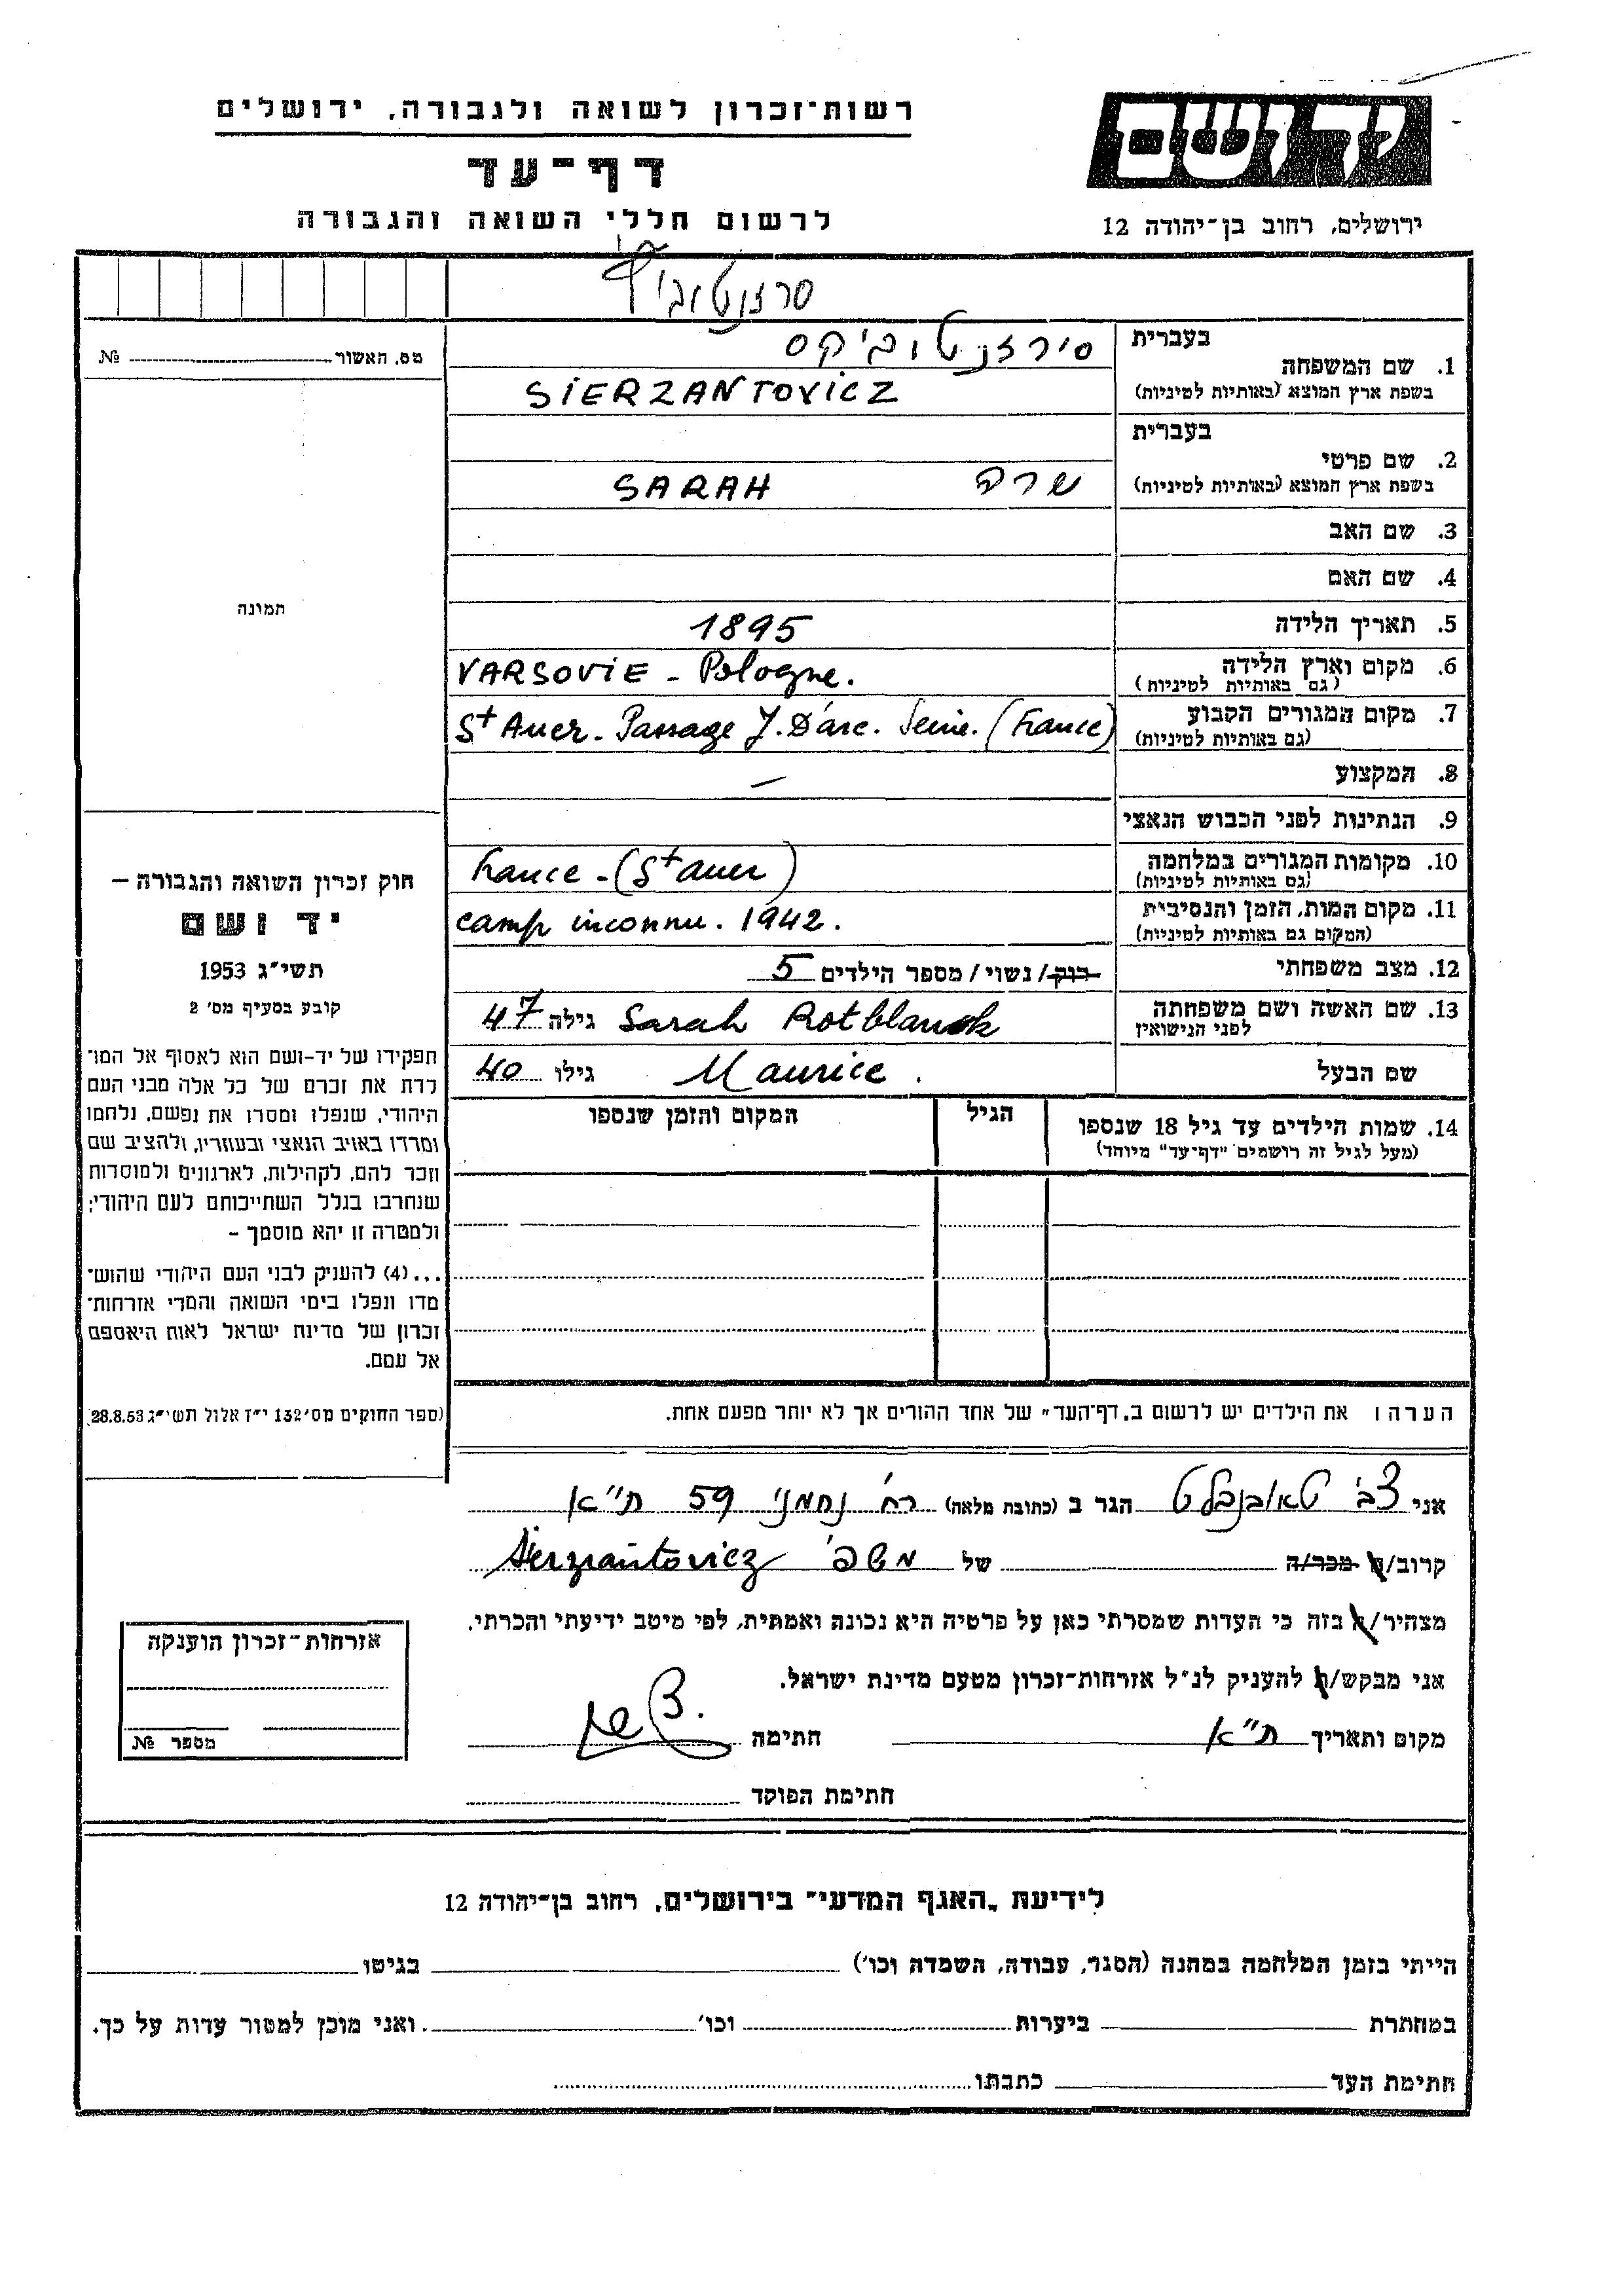 רשות־זכרון לשואה ולגבורה, ירושלים
דף־עד
לרשום חללי השואה והגבורה
יד ושם
ירושלים, רחוב בן־יהודה 12
סרזנטוביץ
מס. האשור №
תמונה
1. שם המשפחה
בעברית
סירזנטוביקס
בשפת ארץ המוצא (באותיות לטיניות)
SIERZANTOVICZ
2. שם פרטי
בעברית
בשפת ארץ המוצא (באותיות לטיניות)
שרה SARAH
3. שם האב
4. שם האם
5. תאריך הלידה
1895
6. מקום וארץ הלידה
(גם באותיות לטיניות)
VARSOVIE - Pologne.
7. מקום המגורים הקבוע
(גם באותיות לטיניות)
St Auer. Passage J. D'arc. Seine. (France)
8. המקצוע
–
9. הנתינות לפני הכבוש הנאצי
10. מקומות המגורים במלחמה
(גם באותיות לטיניות)
France - (St auer)
11. מקום המות, הזמן והנסיבית
(המקום גם באותיות לטיניות)
camp inconnu. 1942.
12. מצב משפחתי
רוק / נשוי / מספר הילדים 5
13. שם האשה ושם משפחתה
לפני הנישואין
Sarah גילה 47
שם הבעל
Maurice. גילו 40
14. שמות הילדים עד גיל 18 שנספו
(מעל לגיל זה רושמים "דף־עד" מיוחד)
הגיל
המקום והזמן שנספו
הערה: את הילדים יש לרשום ב„דף־העד" של אחד ההורים אך לא יותר מפעם אחת.
חוק זכרון השואה והגבורה –
יד ושם
תשי"ג 1953
קובע בסעיף מס' 2
תפקידו של יד-ושם הוא לאסוף אל המו־
לדת את זכרם של כל אלה מבני העם
היהודי, שנפלו ומסרו את נפשם, נלחמו
ומרדו באויב הנאצי ובעוזריו, ולהציב שם
וזכר להם, לקהילות, לארגונים ולמוסדות
שנחרבו בגלל השתייכותם לעם היהודי;
ולמטרה זו יהא מוסמך –
...(4) להעניק לבני העם היהודי שהוש־
מדו ונפלו בימי השואה והמרי אזרחות־
זכרון של מדינת ישראל לאות היאספם
אל עמם.
(ספר החוקים מס' 132 י"ז אלול תשי"ג 28.8.53)
אני צבי טאובנבלט הגר ב (כתובת מלאה) רח' נחמני 59 ת"א
קרוב/ה מכר/ה של משפ' Sierzantovicz
מצהיר/ה בזה כי העדות שמסרתי כאן על פרטיה היא נכונה ואמתית, לפי מיטב ידיעתי והכרתי.
אני מבקש/ת להעניק לנ"ל אזרחות-זכרון מטעם מדינת ישראל.
מקום ותאריך ת"א חתימה
חתימת הפוקד
אזרחות-זכרון הוענקה
מספר №
לידיעת „האגף המדעי" בירושלים, רחוב בן־יהודה 12
הייתי בזמן המלחמה במחנה (הסגר, עבודה, השמדה וכו') בגיטו
במחתרת ביערות וכו' ואני מוכן למסור עדות על כך.
חתימת העד כתבתו